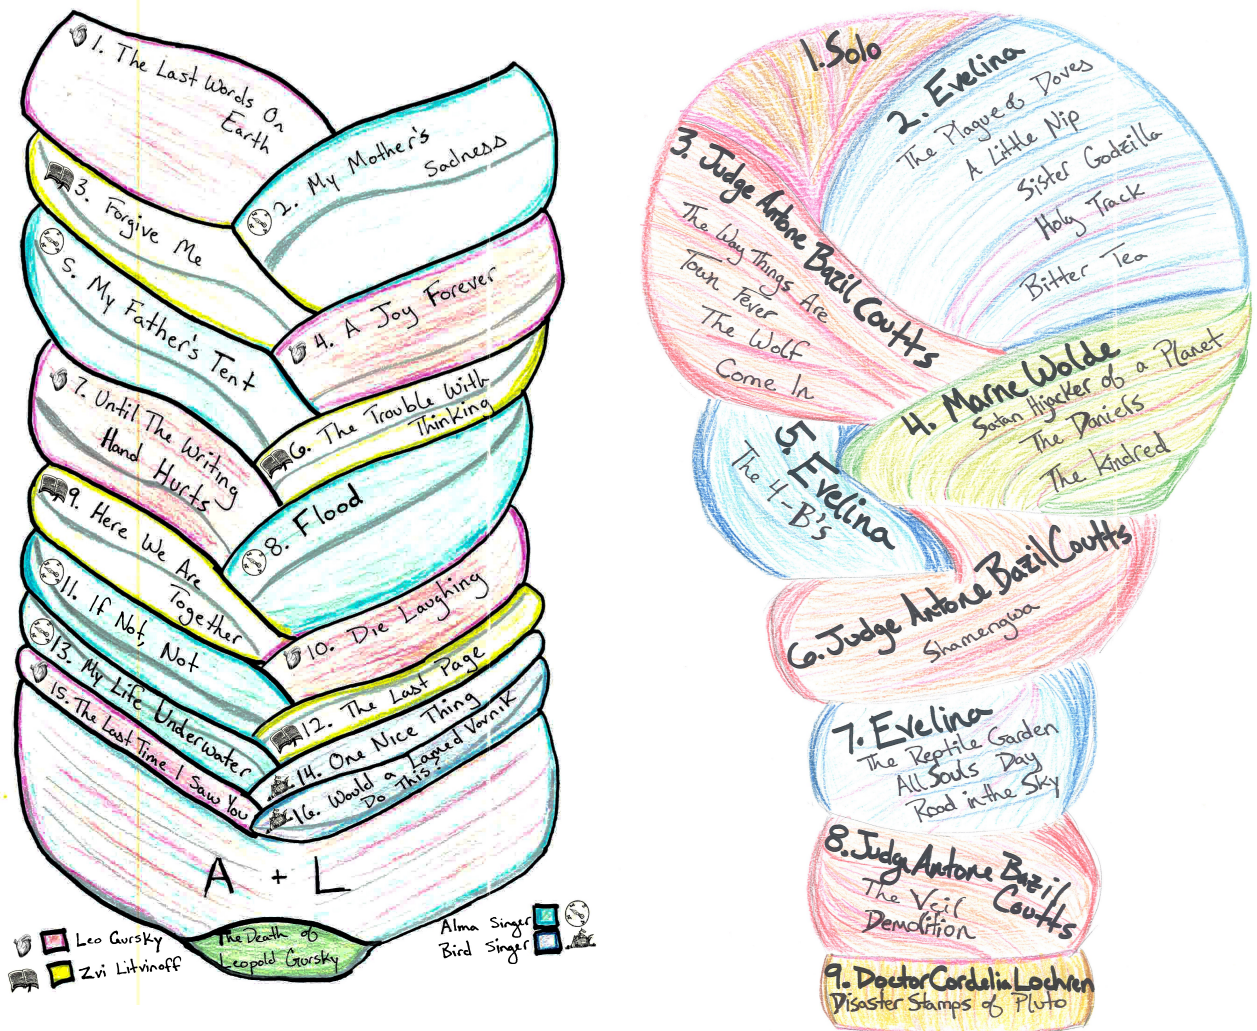 1. The Last Words On
Earth
2. My Mother's
Sadness
3. Forgive Me
4. A Joy Forever
5. My Father's Tent
6. The Trouble With
Thinking
7. Until The Writing
Hand Hurts
8. Flood
9. Here We Are
Together
10. Die Laughing
11. If Not, Not
12. The Last Page
13. My Life Underwater
14. One Nice Thing
15. The Last Time I Saw You
16. Would a Lamed Vovnik
Do This?
A + L
The Death of
Leopold Gursky
Leo Gursky
Zvi Litvinoff
Alma Singer
Bird Singer
1. Solo
2. Evelina
The Plague of Doves
A Little Nip
Sister Godzilla
Holy Track
Bitter Tea
3. Judge Antone Bazil Coutts
The Way Things Are
Town Fever
The Wolf
Come In
4. Marne Wolde
Satan Hijacker of a Planet
The Daniels
The Kindred
5. Evelina
The 4-B's
6. Judge Antone Bazil Coutts
Shamengwa
7. Evelina
The Reptile Garden
All Souls Day
Road in the Sky
8. Judge Antone Bazil
Coutts
The Veil
Demolition
9. Doctor Cordelia Lochren
Disaster Stamps of Pluto